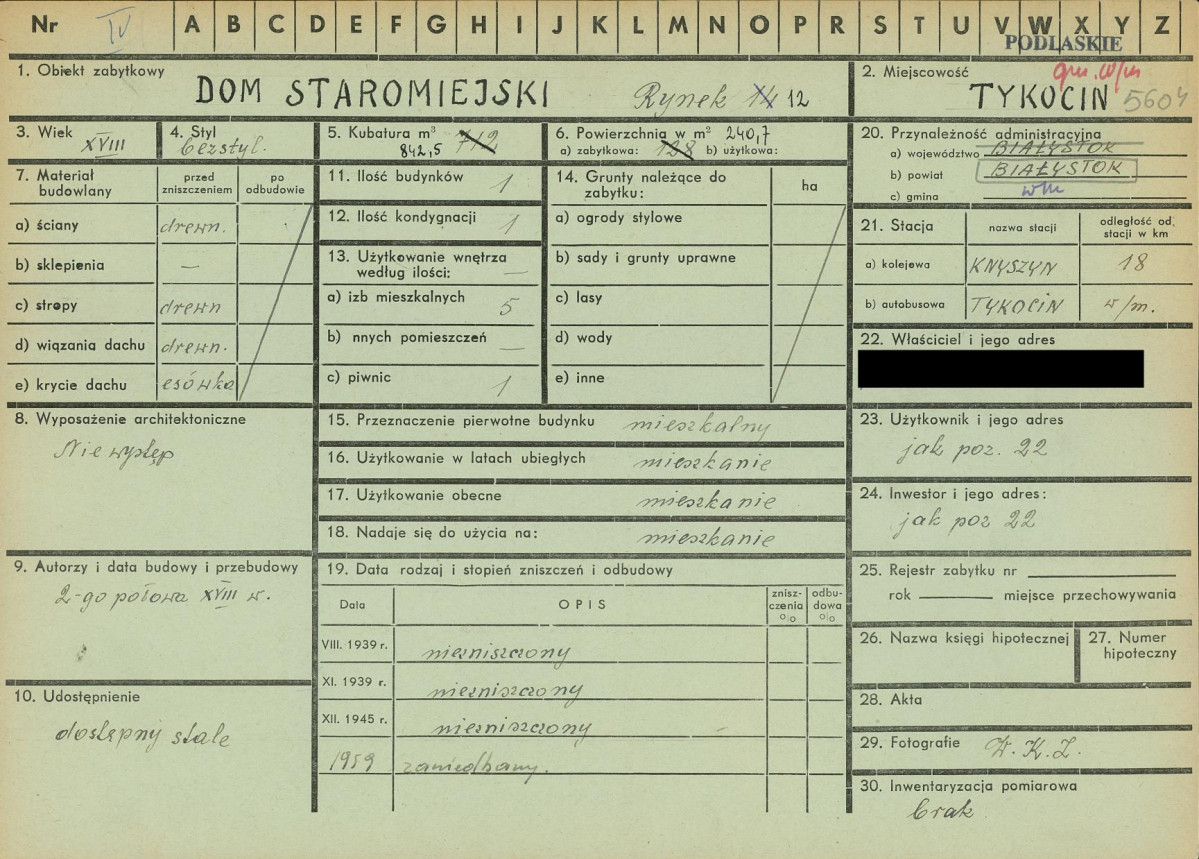 Nr IV A B C D E F G H I J K L M N O P R S T U V W X Y Z
PODLASKIE
1. Obiekt zabytkowy
DOM STAROMIEJSKI Rynek 14 12
2. Miejscowość gm. w/m
TYKOCIN 5604
3. Wiek
XVIII
4. Styl
bezstyl.
5. Kubatura m³ 712
842,5
6. Powierzchnia w m² 240,7
a) zabytkowa: 128 b) użytkowa:
20. Przynależność administracyjna
a) województwo BIAŁYSTOK
b) powiat BIAŁYSTOK
c) gmina w/m
7. Materiał budowlany
przed zniszczeniem
po odbudowie
a) ściany drewn.
b) sklepienia —
c) stropy drewn
d) wiązania dachu drewn.
e) krycie dachu esówka
11. Ilość budynków 1
12. Ilość kondygnacji 1
13. Użytkowanie wnętrza
według ilości: —
a) izb mieszkalnych 5
b) nnych pomieszczeń —
c) piwnic 1
14. Grunty należące do
zabytku:
ha
a) ogrody stylowe
b) sady i grunty uprawne
c) lasy
d) wody
e) inne
21. Stacja
nazwa stacji
odległość od.
stacji w km
a) kolejowa KNYSZYN 18
b) autobusowa TYKOCIN w/m.
22. Właściciel i jego adres
8. Wyposażenie architektoniczne
Nie występ
15. Przeznaczenie pierwotne budynku mieszkalny
16. Użytkowanie w latach ubiegłych mieszkanie
17. Użytkowanie obecne mieszkanie
18. Nadaje się do użycia na: mieszkanie
23. Użytkownik i jego adres
jak poz. 22
24. Inwestor i jego adres:
jak poz 22
9. Autorzy i data budowy i przebudowy
2-go połowa XVIII w.
19. Data rodzaj i stopień zniszczeń i odbudowy
Data
OPIS
znisz-
czenia
%
odbu-
dowa
%
VIII. 1939 r. niezniszczony
XI. 1939 r. niezniszczony
XII. 1945 r. niezniszczony
1959 zaniedbany.
25. Rejestr zabytku nr
rok miejsce przechowywania
26. Nazwa księgi hipotecznej
27. Numer
hipoteczny
10. Udostępnienie
dostępny stale
28. Akta
29. Fotografie W. K. Z.
30. Inwentaryzacja pomiarowa
brak